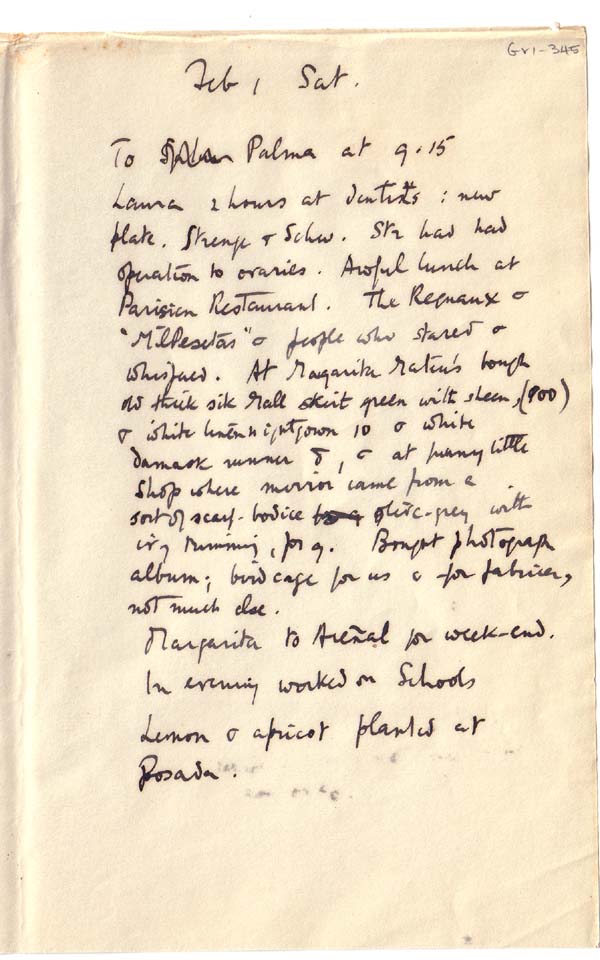 Gr1-345
Feb 1 Sat.
To Palma at 9.15
Laura 2 hours at dentists : new
plate. Strenge & Schw. Str had had
operation to ovaries. Awful lunch at
Parisien Restaurant. The Regnaux &
"MilPesetas" & people who stared &
whispered. At Margarita Mateu's bough
old thick silk Mall skirt green with sheen, (900)
& white linen nightgown 10 & white
damask runner 8, & at funny little
shop where mirror came from a
sort of scarf-bodice olive-grey with
trimming, for 9. Bought photograph
album; bird cage for us & for fabrices,
not much else.
Margarita to Areñal for week-end.
In evening worked on Schools
Lemon & apricot planted at
Posada.